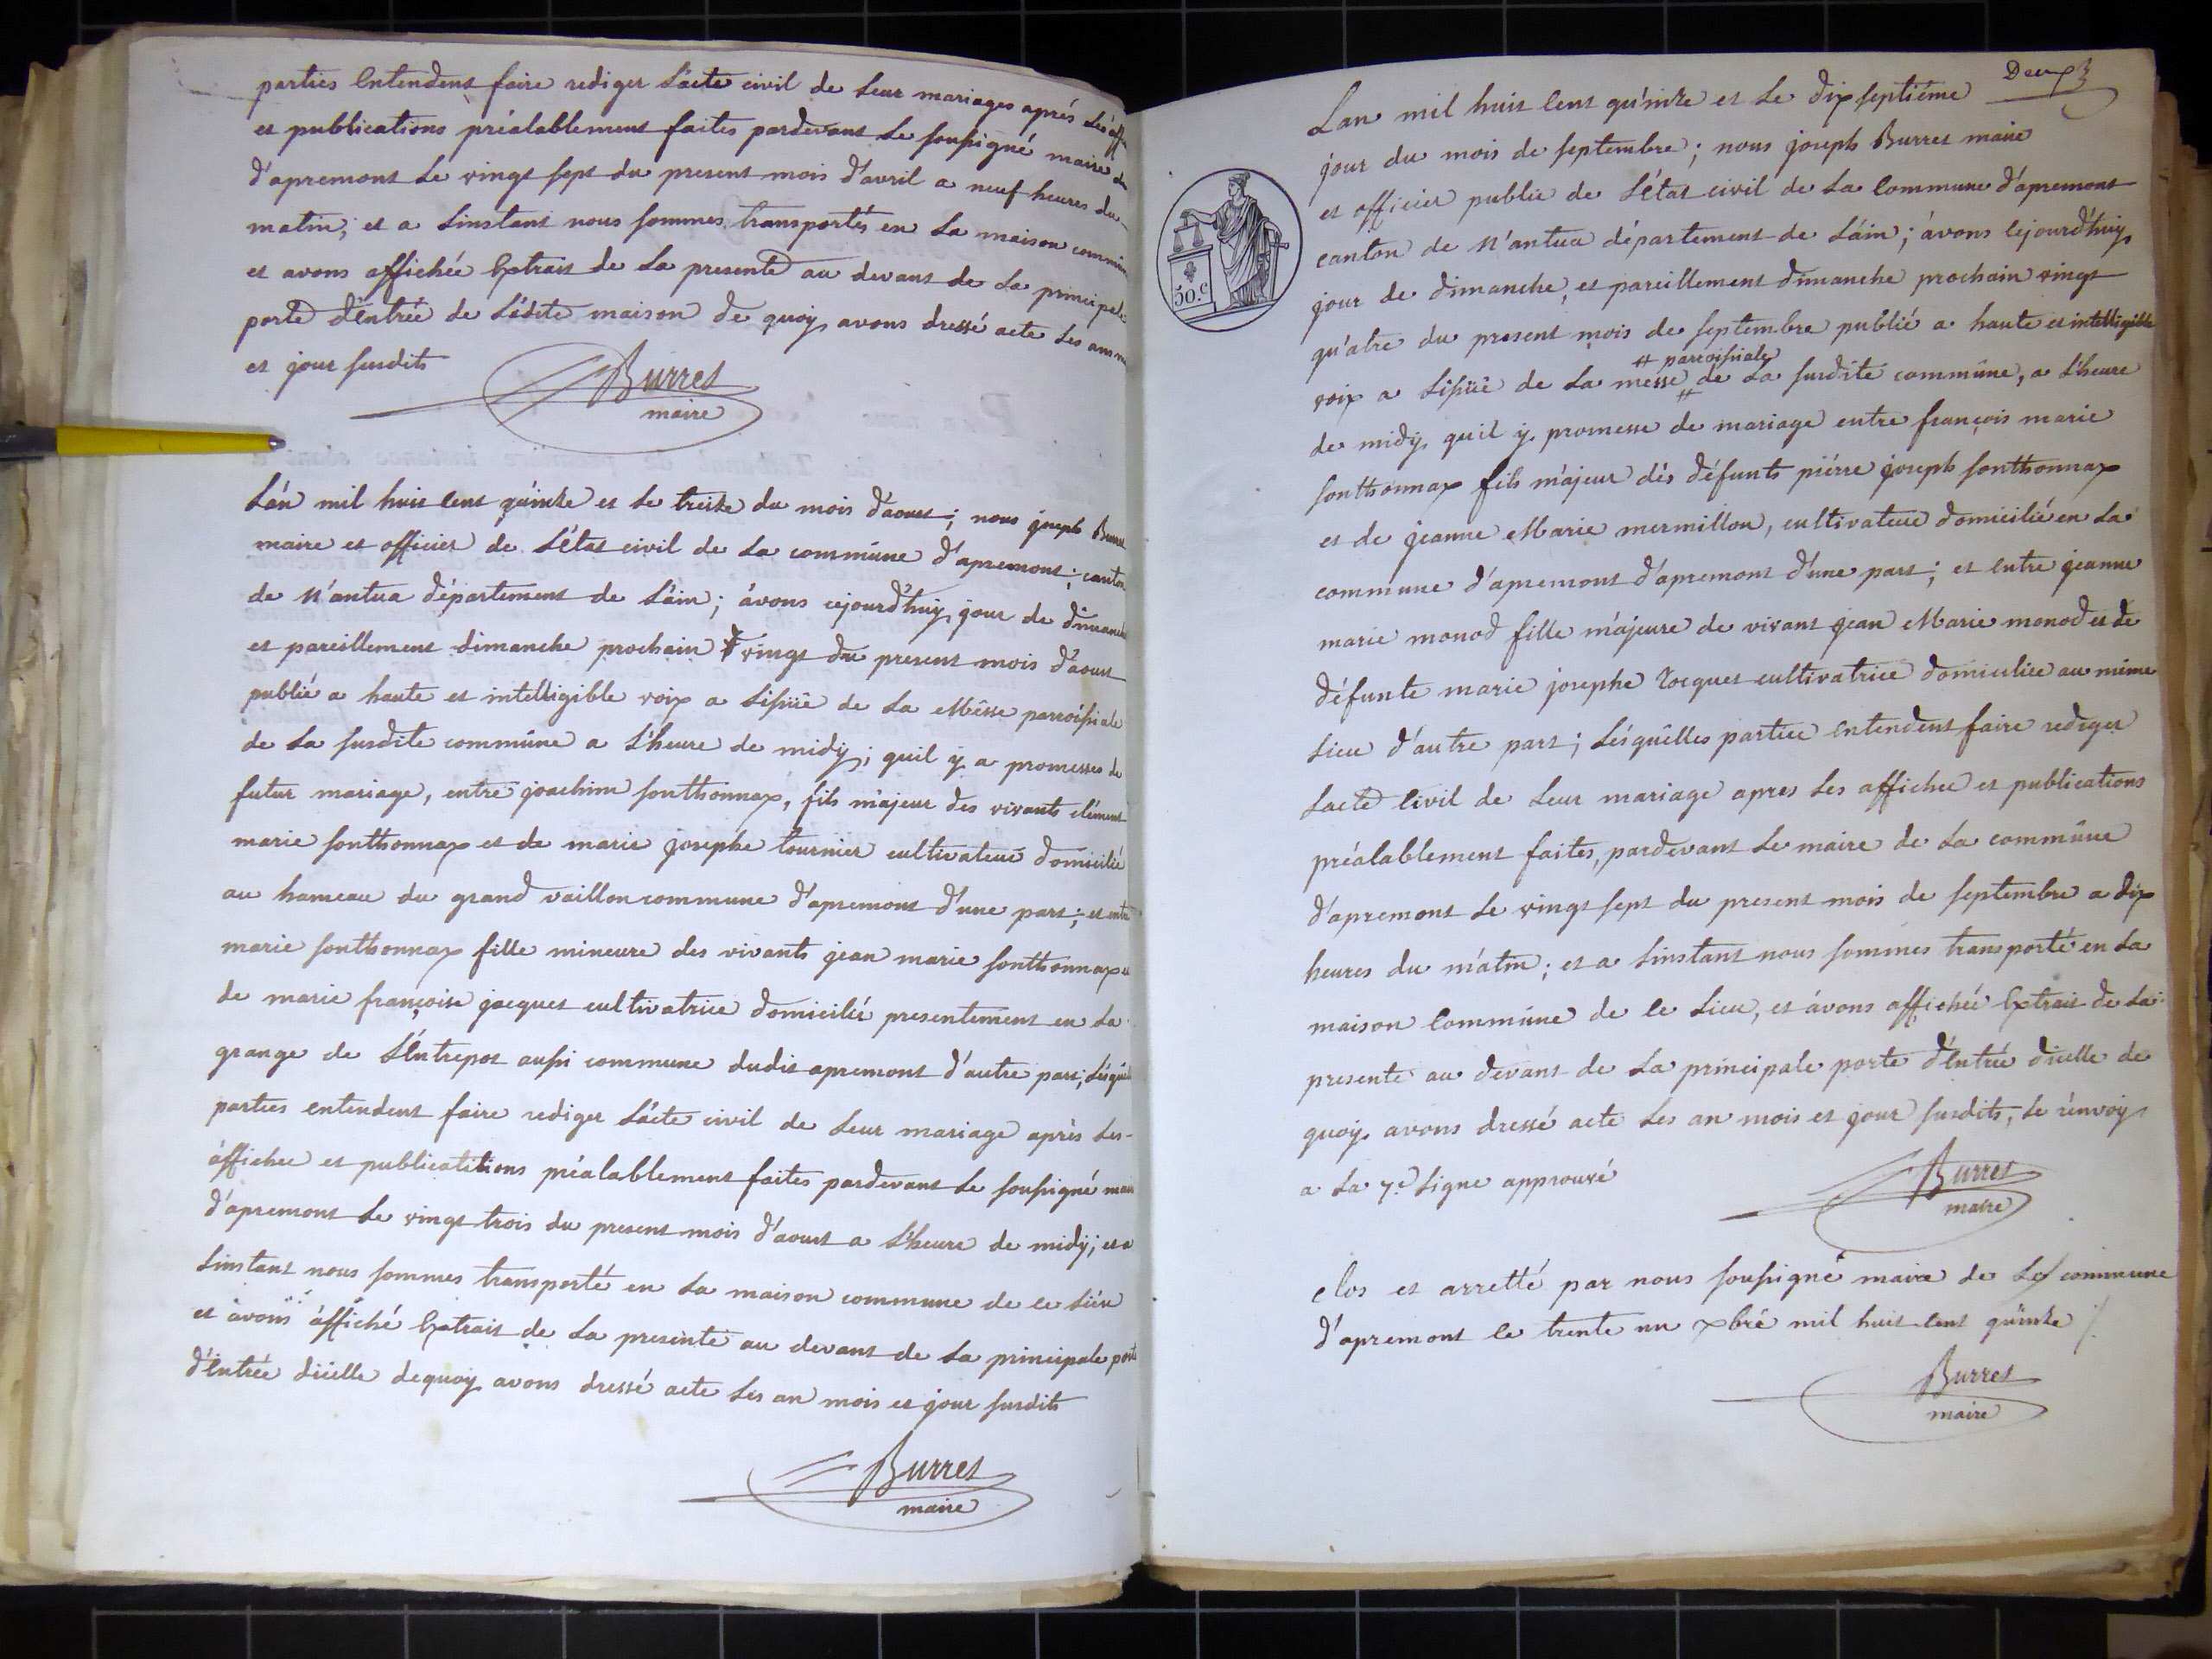 parties Entendent faire rediger L'acte civil de Leur mariages aprés Les
et publications préalablement faites pardevant Le soussigné maire
d'apremont Le vingt sept du present mois d'avril a neuf heures du
matin; et a Linstant nous sommes transportés en La maison
et avons affichée Extrait de La presente au devant de La
porte d'Entrée de Lédite maison de quoy avons dressé acte Les
et jour susdits
Burret
maire
L'an mil huit cent quinze et Le treize du mois d'aoust; nous joseph
maire et officier de L'état civil de La commune d'apremont; canton
de N'antua département de L'ain; avons cejourd'huy, jour de
et pareillement dimanche prochain vingt du present mois d'aoust
publié a haute et intelligible voix a L'issüe de La Messe parroissiale
de La susdite commune a L'heure de midy; quil y a promesses de
futur mariage, entre joachim sonthonnax, fils majeur des vivants clément
marie sonthonnax et de marie josephe tournier cultivateur domicilié
au hameau du grand vaillon commune d'apremont d'une part; et entre
marie sonthonnax fille mineure des vivants jean marie sonthonnax
de marie françoise jacquet cultivatrice domicilié presentement en La
grange de L'Entrepot aussi commune dudit apremont d'autre part;
parties entendent faire rediger L'acte civil de Leur mariage aprés Les
affichee et publicatitions préalablement faites pardevant Le soussigné
d'apremont Le vingt trois du present mois d'aoust a L'heure de midy; et a
Linstant nous sommes transporté en La maison commune de ce Lieu
et avons affiché Extrait de La presente au devant de La principale porte
d'Entrée dicelle dequoy avons dressé acte Les an mois et jour susdits
Burret
maire
Deux
Lan mil huit cent quinze et Le dixseptiéme
jour du mois de septembre; nous joseph Burret maire
et officier public de L'état civil de La Commune d'apremont
canton de N'antua département de L'ain; avons cejourd'huy
50.c
jour de dimanche, et pareillement dimanche prochain vingt
qu'atre du present mois de septembre publié a haute et intelligible
# paroissiale
voix a L'issüe de La messe # de La susdite commune, a L'heure
de midy, quil y promesse de mariage entre françois marie
sonthonnax fils majeur dés défunts piérre joseph sonthonnax
et de jeanne Marie mermillon, cultivateur domicilié en La
commune d'apremont d'apremont d'une part; et Entre jeanne
marie monod fille majeure de vivant jean Marie monod et de
défunte marie josephe Tocquet cultivatrice domiciliée au même
Lieu d'autre part; Lesquelles partiee entendent faire rediger
Lacte Civil de Leur mariage apres Les affichee et publications
préalablement faites, pardevant Le maire de La commune
d'apremont Le vingt sept du present mois de septembre a dix
heures du matin; et a Linstant nous sommes transporté en La
maison Commune de ce Lieu, et avons affichée Extrait de La
presente au devant de La principale porte d'Entrée dicelle de
quoy avons dressé acte Les an mois et jour susdits, Le renvoy
a La 7e Ligne approuvé
Burret
maire
Clos et arretté par nous soussigné maire de La commune
d'apremont le trente un xbre mil huit cent quinze
Burret
maire